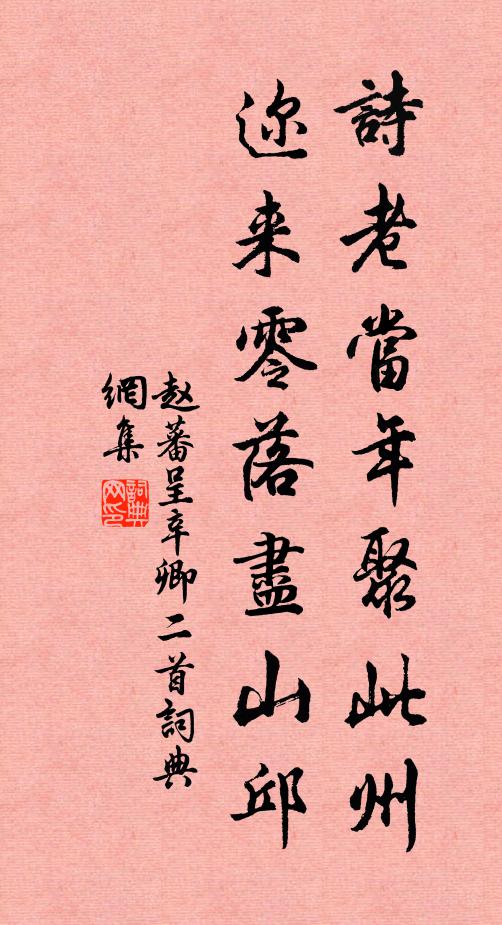 詩老當年聚此州
迩来零落盡山邱
赵蕃呈辛卿二首詞典
網集
詞典網印